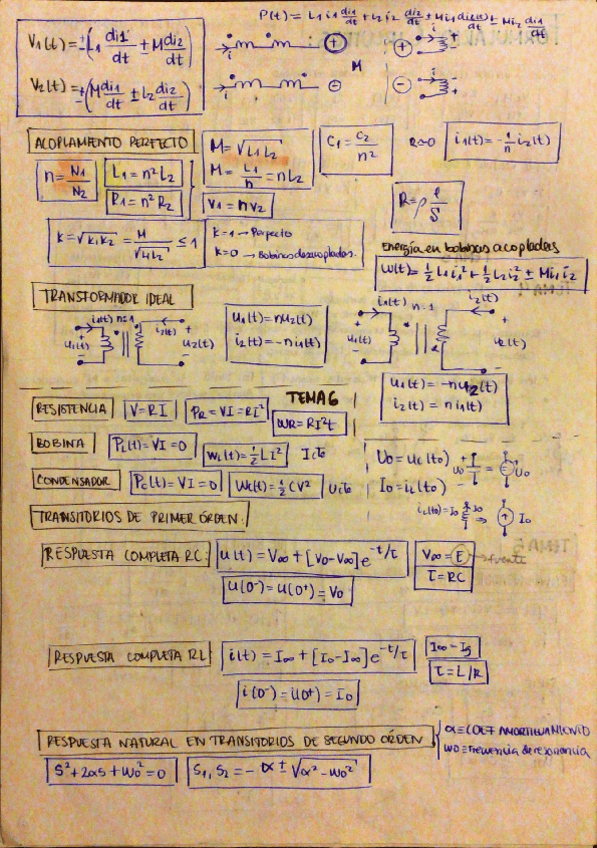 P(t) = L1 i1 di1/dt + L2 i2 di2/dt ± M i1 di2(t)/dt ± M i2 di1/dt
V1(t) = ±(L1 di1/dt ± M di2/dt)
V2(t) = ±(M di1/dt ± L2 di2/dt)
i
+
+
i
M
i
-
-
i
ACOPLAMIENTO PERFECTO
n = N1/N2
L1 = n² L2
R1 = n² R2
M = √L1 L2
M = L1/n = nL2
V1 = nV2
C1 = C2/n²
R→0
i1(t) = -1/n i2(t)
R = ρ l/S
K = √K1K2 = M/√L1L2 ≤ 1
K=1 → Perfecto
K=0 → Bobinas desacopladas.
Energía en bobinas acopladas
W(t) = 1/2 L1 i1² + 1/2 L2 i2² ± M i1 i2
TRANSFORMADOR IDEAL
i1(t) n:1 i2(t)
u1(t) u2(t)
u1(t) = nu2(t)
i2(t) = -ni1(t)
i1(t) n:1 i2(t)
u1(t) u2(t)
u1(t) = -nu2(t)
i2(t) = ni1(t)
TEMA 6
RESISTENCIA V=RI PR = VI = RI² WR = RI²t
BOBINA PL(t) = VI = 0 WL(t) = 1/2 LI²
CONDENSADOR PC(t) = VI = 0 WC(t) = 1/2 CV²
U0 = uC(t0) U0 = U0
I0 = iL(t0)
iL(t0) = I0 ⇒ I0
TRANSITORIOS DE PRIMER ÓRDEN:
RESPUESTA COMPLETA RC: u(t) = V∞ + [V0 - V∞] e^-t/τ
V∞ = E → fuente
τ = RC
u(0⁻) = u(0⁺) = V0
RESPUESTA COMPLETA RL i(t) = I∞ + [I0 - I∞] e^-t/τ
τ = L/R
i(0⁻) = i(0⁺) = I0
RESPUESTA NATURAL EN TRANSITORIOS DE SEGUNDO ÓRDEN
α ≡ COEF AMORTIGUAMIENTO
ω0 ≡ frecuencia de resonancia
S² + 2αs + ω0² = 0
S1, S2 = -α ± √α² - ω0²